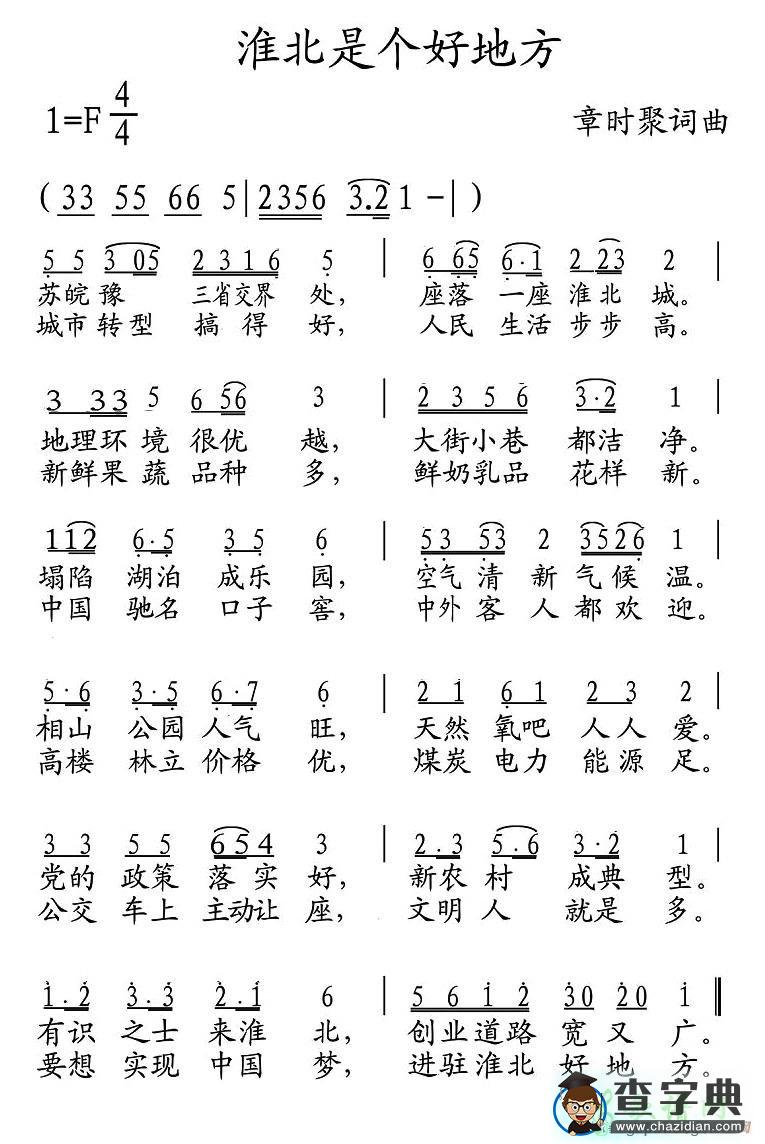 淮北是个好地方
1=F 4/4
章时聚词曲
( 33 55 66 5 | 2356 3.2 1 - | )
5 5 3 05 2316 5 | 6 65 6·1 2 23 2 |
苏皖豫 三省交界 处， 座落 一座 淮北 城。
城市转型 搞得 好， 人民 生活 步步 高。
3 33 5 6 56 3 | 2 3 5 6 3·2 1 |
地理环境很优 越， 大街小巷 都洁 净。
新鲜果蔬 品种 多， 鲜奶乳品 花样 新。
112 6·5 3 5 6 | 53 53 2 3526 1 |
塌陷 湖泊 成乐 园， 空气清新气候 温。
中国 驰名 口子 窖， 中外客人都欢 迎。
5·6 3·5 6·7 6 | 2 1 6 1 2 3 2 |
相山 公园 人气 旺， 天然 氧吧 人人 爱。
高楼 林立 价格 优， 煤炭 电力 能源 足。
3 3 5 5 654 3 | 2.3 5.6 3·2 1 |
党的 政策 落实 好， 新农 村 成典 型。
公交 车上 主动让 座， 文明人 就是 多。
1.2 3.3 2.1 6 | 5 6 1 2 30 20 1 ‖
有识 之士 来淮 北， 创业道路 宽 又 广。
要想 实现 中国 梦， 进驻淮北 好 地 方。
查字典
www.chazidian.com